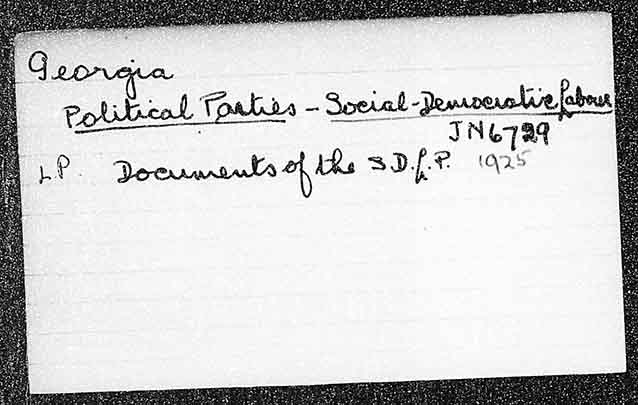 Georgia
Political Parties - Social-Democratic Labour
JN6729
L.P. Documents of the S.D.L.P. 1925